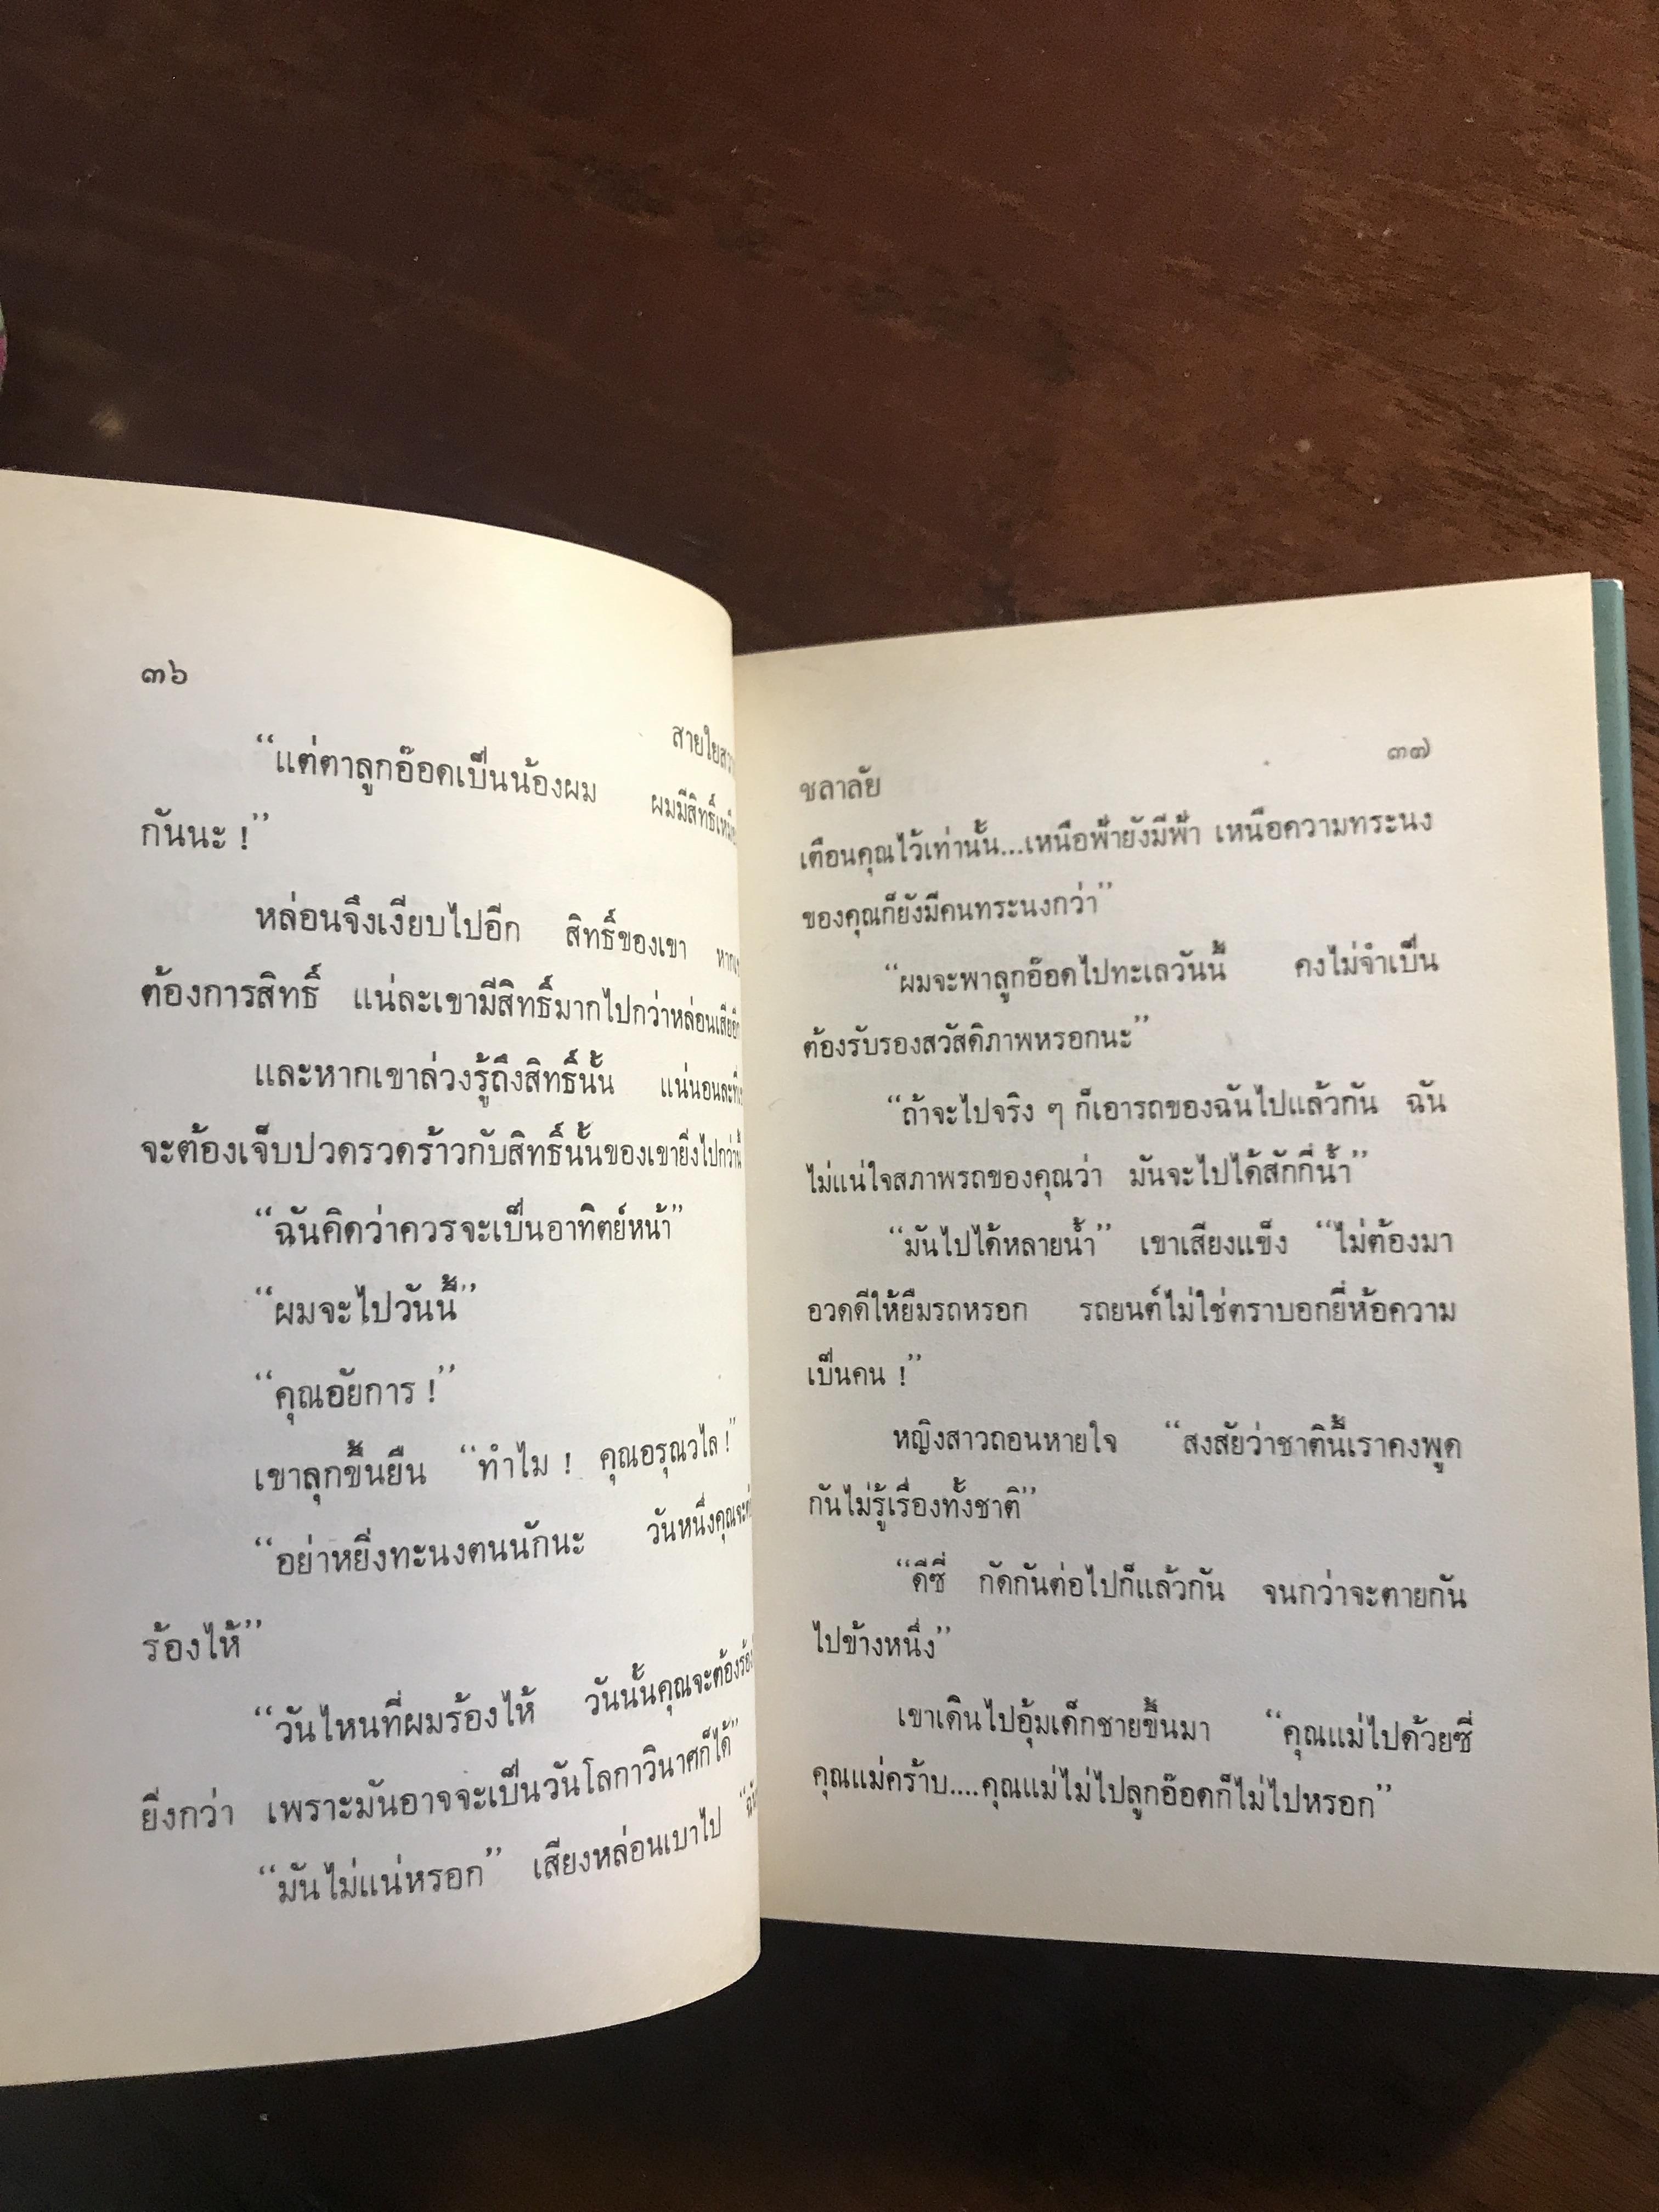 ๓๖
"แต่ตาลูกอ๊อดเป็นน้องผม ผมมีสิทธิ์
กันนะ !"
หล่อนจึงเงียบไปอีก สิทธิ์ของเขา
ต้องการสิทธิ์ แน่ละเขามีสิทธิ์มากไปกว่าหล่อนเสียอีก
และหากเขาล่วงรู้ถึงสิทธิ์นั้น แน่นอนละ
จะต้องเจ็บปวดรวดร้าวกับสิทธิ์นั้นของเขายิ่งไปกว่านี้
"ฉันคิดว่าควรจะเป็นอาทิตย์หน้า"
"ผมจะไปวันนี้"
"คุณอัยการ !"
เขาลุกขึ้นยืน "ทำไม ! คุณอรุณวไล !"
"อย่าหยิ่งทะนงตนนักนะ วันหนึ่งคุณจะ
ร้องไห้"
"วันไหนที่ผมร้องไห้ วันนั้นคุณจะต้อง
ยิ่งกว่า เพราะมันอาจจะเป็นวันโลกาวินาศก็ได้"
"มันไม่แน่หรอก" เสียงหล่อนเบาไป
ชลาลัย ๓๗
เตือนคุณไว้เท่านั้น...เหนือฟ้ายังมีฟ้า เหนือความทระนง
ของคุณก็ยังมีคนทระนงกว่า"
"ผมจะพาลูกอ๊อดไปทะเลวันนี้ คงไม่จำเป็น
ต้องรับรองสวัสดิภาพหรอกนะ"
"ถ้าจะไปจริง ๆ ก็เอารถของฉันไปแล้วกัน ฉัน
ไม่แน่ใจสภาพรถของคุณว่า มันจะไปได้สักกี่น้ำ"
"มันไปได้หลายน้ำ" เขาเสียงแข็ง "ไม่ต้องมา
อวดดีให้ยืมรถหรอก รถยนต์ไม่ใช่ตราบอกยี่ห้อความ
เป็นคน !"
หญิงสาวถอนหายใจ "สงสัยว่าชาตินี้เราคงพูด
กันไม่รู้เรื่องทั้งชาติ"
"ดีซี่ กัดกันต่อไปก็แล้วกัน จนกว่าจะตายกัน
ไปข้างหนึ่ง"
เขาเดินไปอุ้มเด็กชายขึ้นมา "คุณแม่ไปด้วยซี่
คุณแม่คร้าบ....คุณแม่ไม่ไปลูกอ๊อดก็ไม่ไปหรอก"